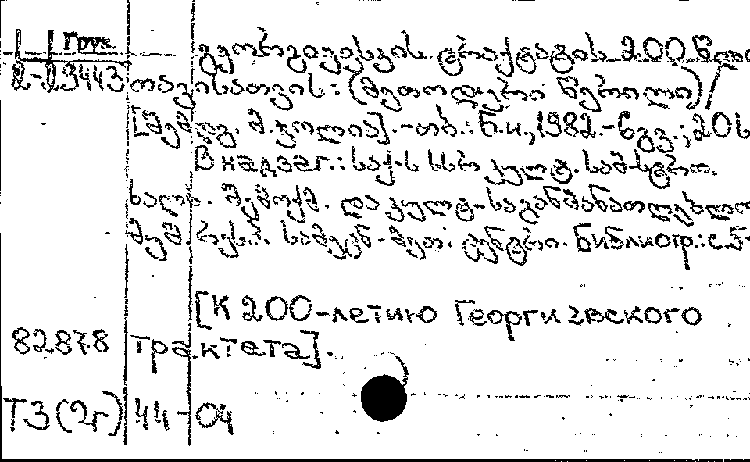 Груз.
2-23443
გეორგიევსკის ტრაქტატის 200 წლის
თავისათვის: (მეთოდური წერილი)/
[შემდგ. მ. ჯოლია].-თბ.: ნ.ი., 1982.-6 გვ.; 20 ს
В надзаг.: საქ-ს სსრ კულტ. სამ-სტრო.
ხალხ. შემოქმ. და კულტ-საგანმანათლებლო
მუშ. რესპ. სამეცნ-მეთ. ცენტრი. Библиогр.: с. 5-
[К 200-летию Георгиевского
82878 трактата].
ТЗ(2г) 44-04